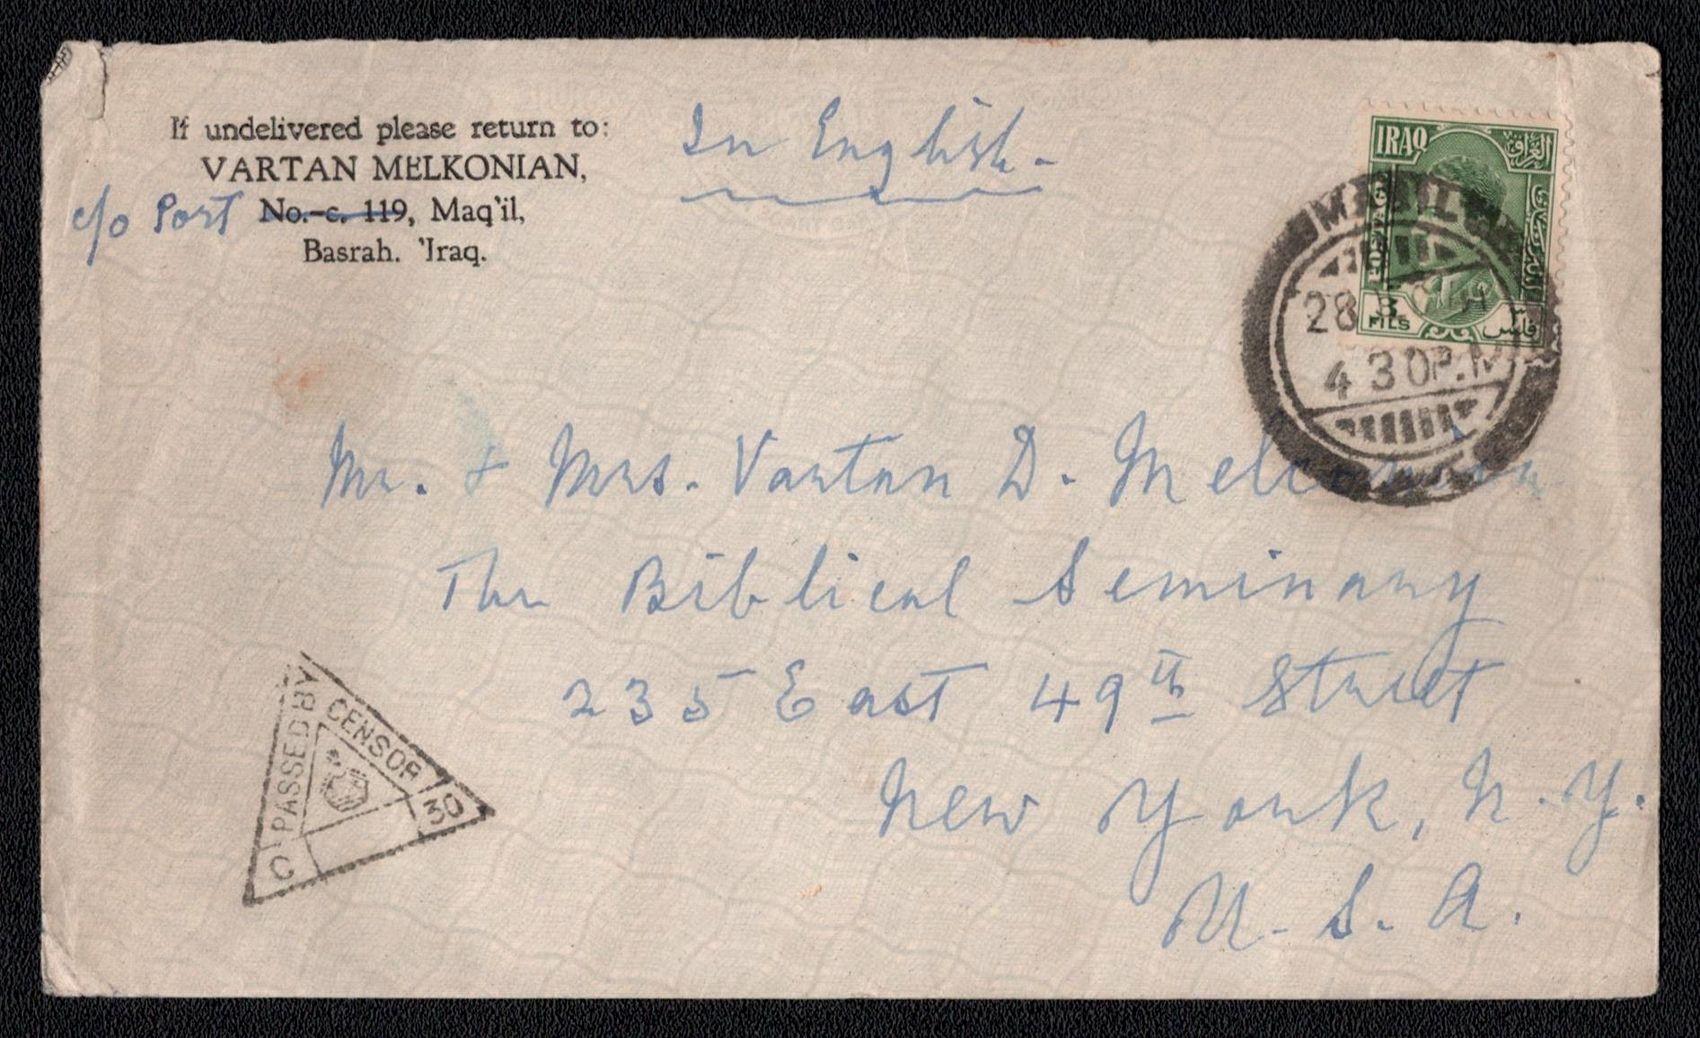 If undelivered please return to:
VARTAN MELKONIAN,
c/o Port No.-c. 119, Maq'il,
Basrah. 'Iraq.
In English.
IRAQ العراق
POSTAGE
FILS فلس
28
4 30 P.M
Mr. & Mrs. Vartan D. Melconian
The Biblical Seminary
235 East 49th Street
New York, N.Y.
U.S.A.
PASSED BY
CENSOR
C
30